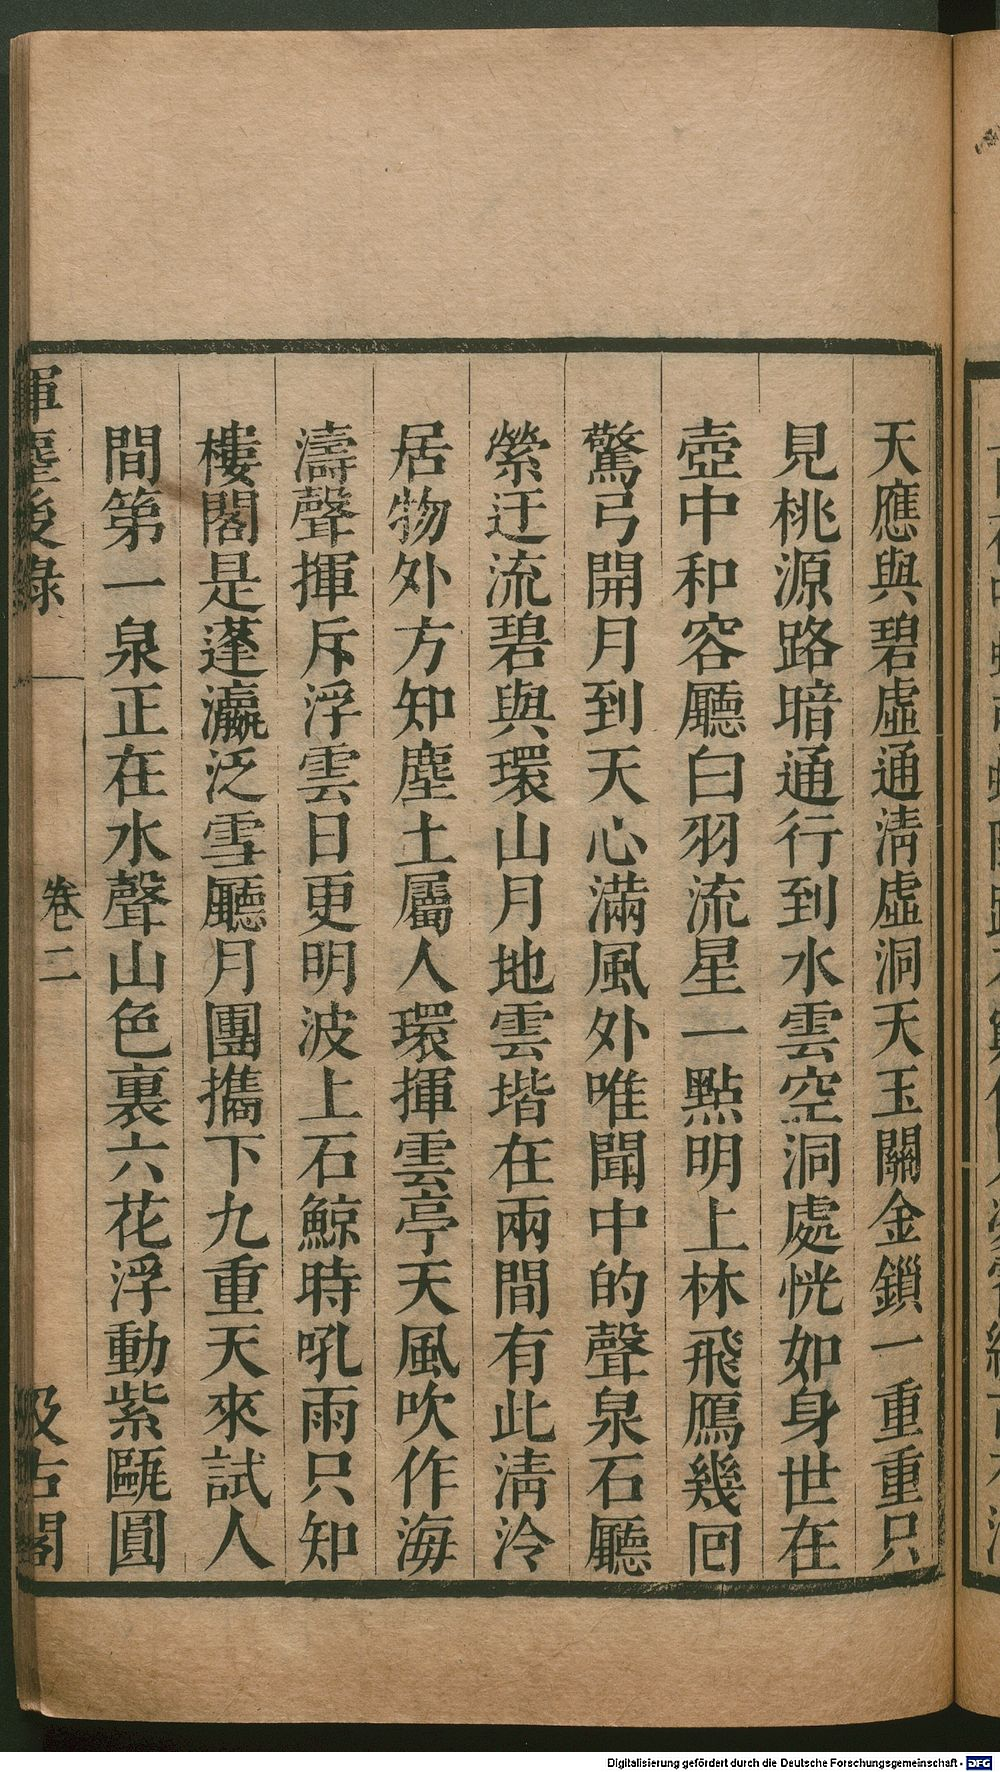 天應與碧虛通淸虛洞天玉關金鎻一重重只
見桃源路暗通行到水雲空洞處恍如身世在
壺中和容廳白羽流星一點明上林飛鴈幾囘
驚弓開月到天心滿風外唯聞中的聲泉石廳
縈迂流碧與環山月地雲堦在兩間有此淸泠
居物外方知塵土屬人環揮雲亭天風吹作海
濤聲揮斥浮雲日更明波上石鯨時吼雨只知
樓閣是蓬瀛泛雪廳月團攜下九重天來試人
間第一泉正在水聲山色裏六花浮動紫甌圓
揮麈後錄
卷二
汲古閣
Digitalisierung gefördert durch die Deutsche Forschungsgemeinschaft - DFG